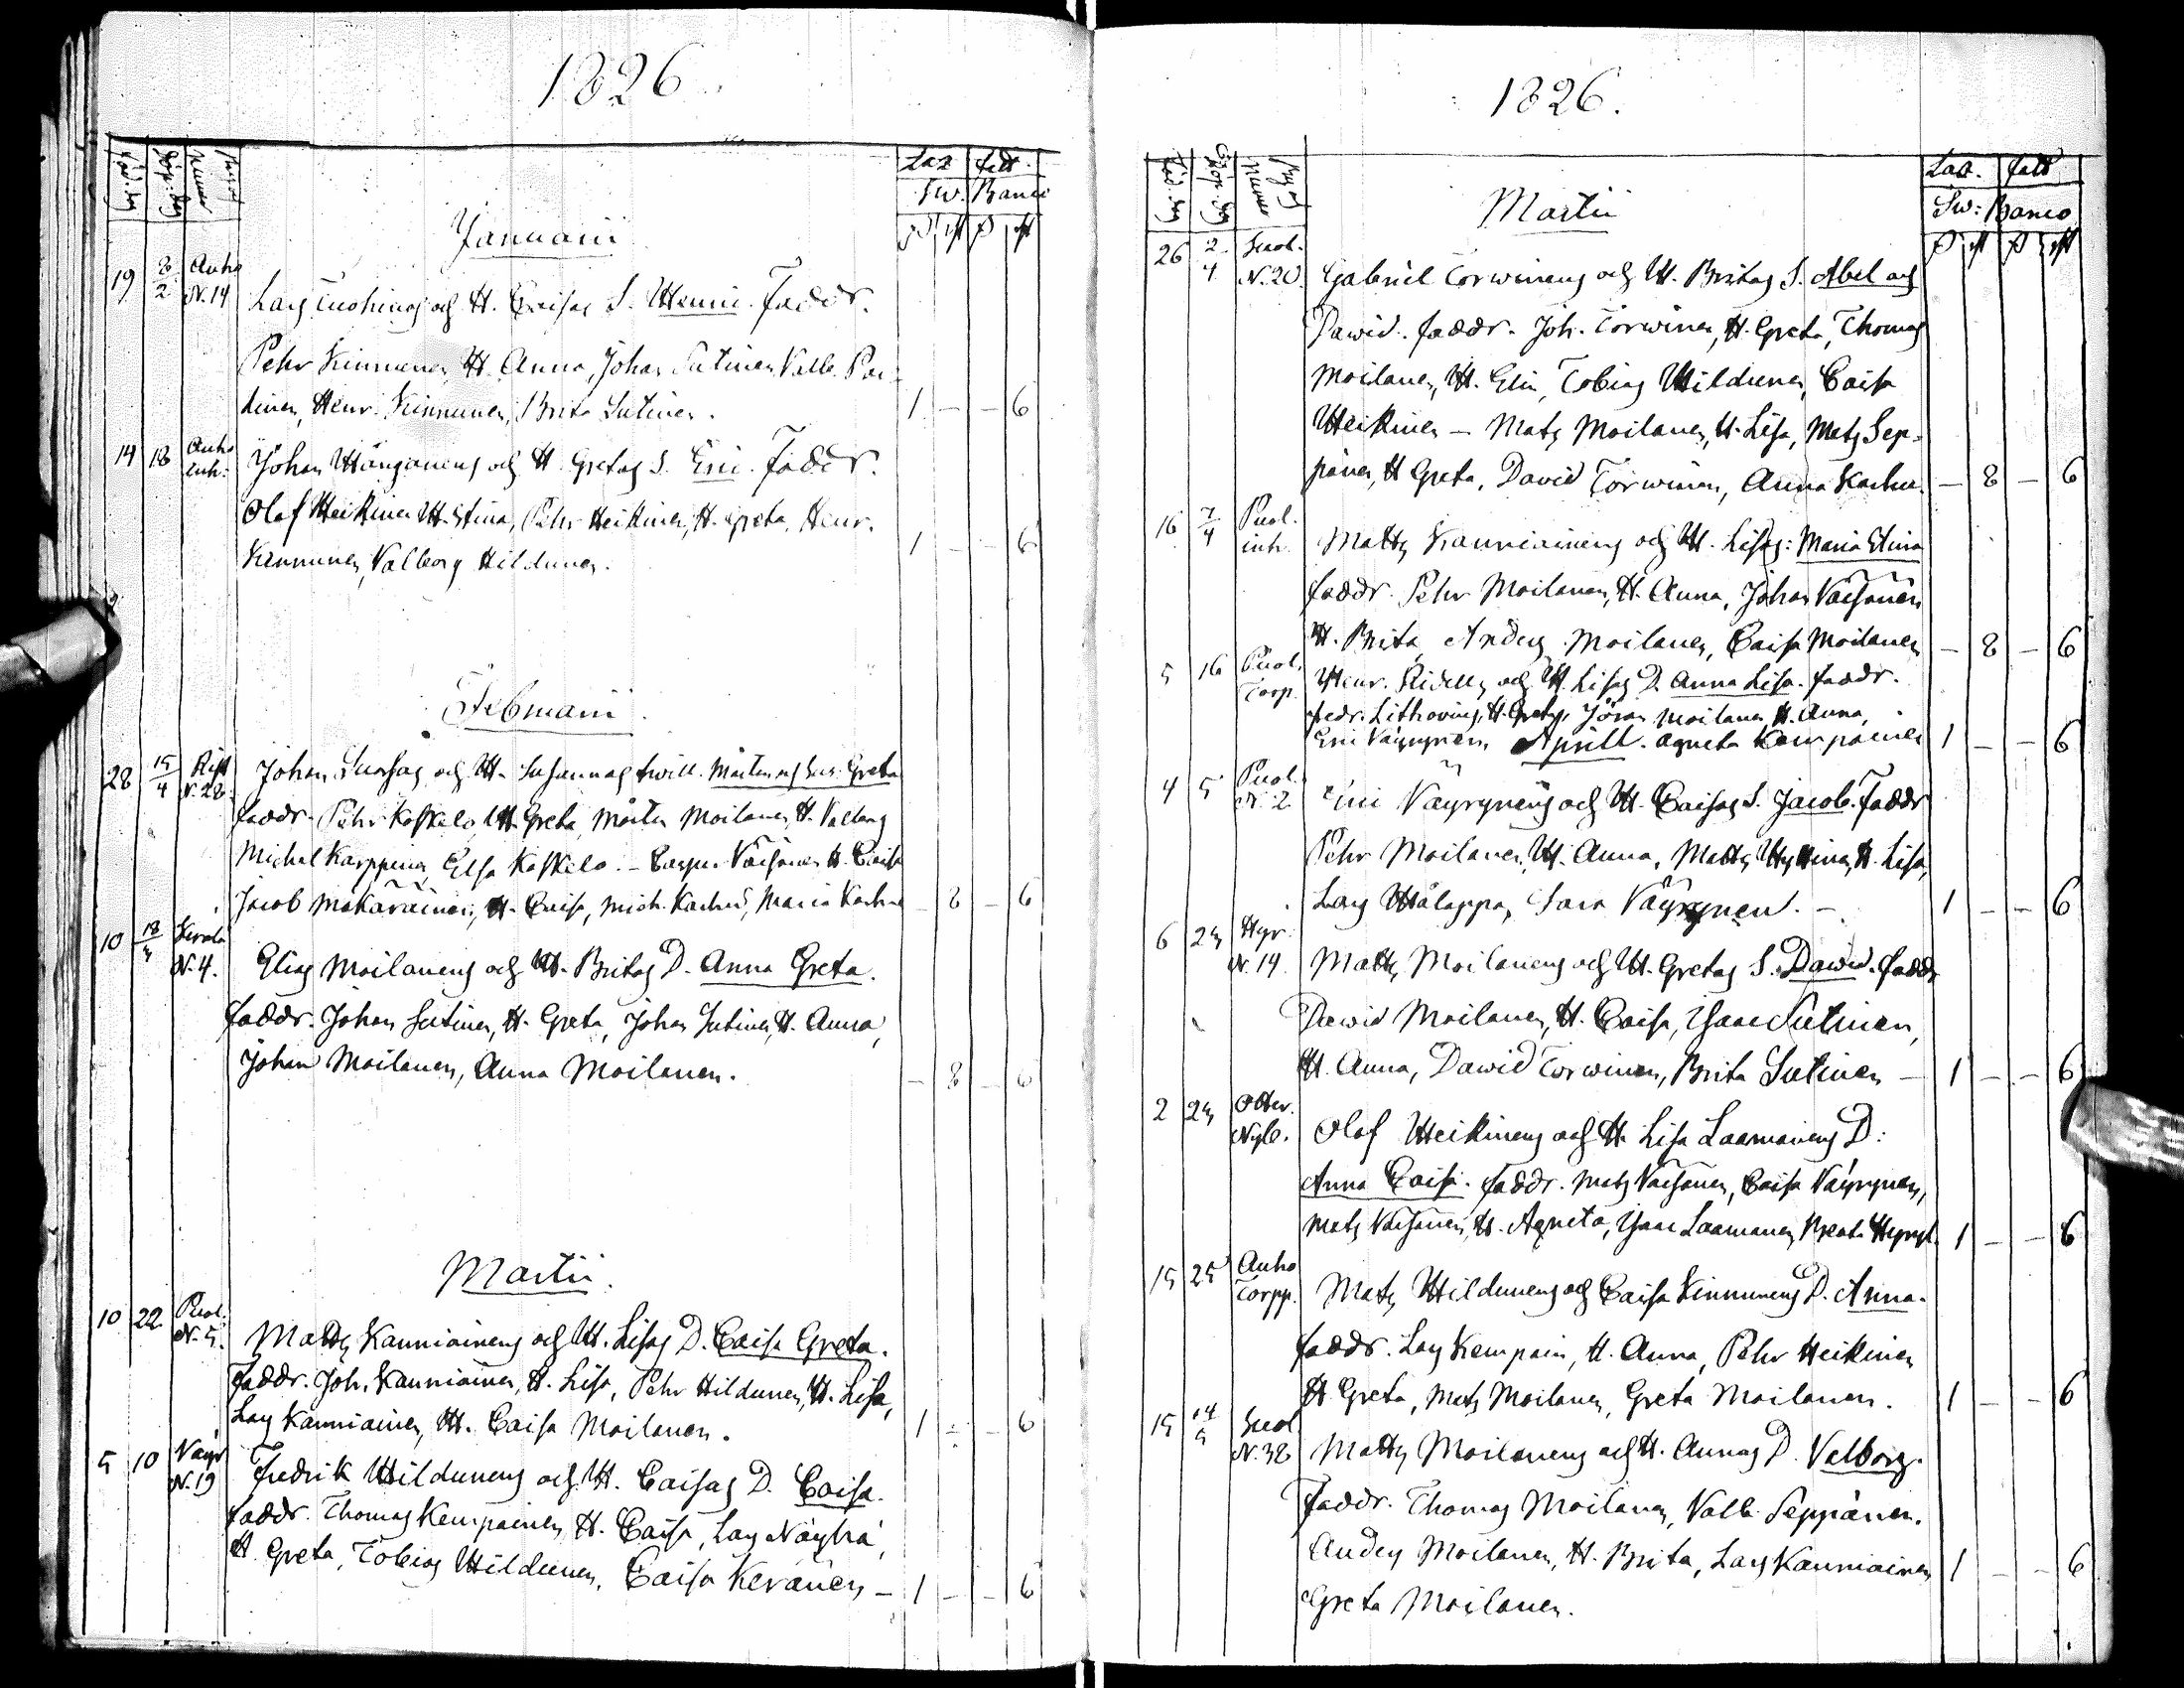 1826
Januarii
19 8/2 Auho N. 14 Lars och H. Caisas S. Henric. Faddr.
Pehr Kinnunen, H. Anna, Johan Sutinen, Valb.
Henr. Kinnunen, Brita Sutinen. 1 — — 6
14 18 Auho inh: Johan och H. Gretas S. Eric. Faddr.
Olof Heikinen H. Stina, Pehr Heikinen, H. Greta, Henr. 1 — — 6
Kinnunen, Valborg Hildunen.
Februarii
28 15/4 N. 28 Johan och H. Susannas twill. Mårten och Greta
faddr. Pehr Koskelo, H. Greta, Mårten Moilanen, H. Valborg
Michel Karppinen, Elsa Koskelo. — Väisänen H. Caisa
Jacob Mäkäräinen, H. Caisa, Mich. Karhu, Maria Karhu — 8 — 6
10 N. 4. Elias Moilanens och H. Britas D. Anna Greta.
faddr. Johan Sutinen, H. Greta, Johan Sutinen, H. Anna,
Johan Moilanen, Anna Moilanen. — 8 — 6
Martii.
10 22 Puol. N. 5. Matts Kanniainens och H. Lisas D. Caisa Greta.
Faddr. Joh. Kanniainen, H. Lisa, Pehr Hildunen, H. Lisa,
Lars Kanniainen, H. Caisa Moilanen. 1 — — 6
5 10 Väyr N. 19 Fredrik Hildunens och H. Caisas D. Caisa.
faddr. Thomas Kempainen, H. Caisa, Lars
H. Greta, Tobias Hildunen, Caisa Keränen — 1 — — 6
1826.
Martii
26 2/4 N. 20. Gabriel Torwinens och H. Britas S. Abel och
Dawid. faddr. Joh. Torwinen, H. Greta, Thomas
Moilanen, H. Elin, Tobias Hildunen, Caisa
Heikinen — Mats Moilanen, H. Lisa, Mats Sep-
pänen, H. Greta, David Torwinen, Anna Karhu. — 8 — 6
16 7/4 Puol. inh. Matts Kanniainens och H. Lisas: Maria Stina
faddr. Pehr Moilanen, H. Anna, Johan Väisänen
H. Brita, Anders Moilanen, Caisa Moilanen — 8 — 6
5 16 Puol. Torp. Henr. och H. Lisas D. Anna Lisa. faddr.
Fredr. Lithovius, H. Greta, Jöran Moilanen H. Anna,
Eric Väyrynen, Agneta Kempainen 1 — — 6
Aprill.
4 5 Puol. N. 2. Eric Väyrynens och H. Caisas S. Jacob. Faddr
Pehr Moilanen, H. Anna, Matts Hyttinen, H. Lisa,
Lars Hålappa, Sara Väyrynen. — 1 — — 6
6 23 Hyr. N. 14. Matts Moilanens och H. Gretas S. Dawid. faddr
Dawid Moilanen, H. Caisa, Isaac Sutinen,
H. Anna, Dawid Torwinen, Brita Sutinen — 1 — — 6
2 23 Nyb. Olof Heikinens och H. Lisa Laamanens D:
Anna Caisa. faddr. Mats Väisänen, Caisa Väyrynen,
Mats Väisänen, H. Agneta, Isaac Laamanen, 1 — — 6
15 25 Auho Torpp. Mats Hildunens och Caisa Kinnunens D. Anna.
faddr. Lars Kempain, H. Anna, Pehr Heikinen
H. Greta, Mats Moilanen, Greta Moilanen. 1 — — 6
15 14/5 N. 38 Matts Moilanens och H. Annas D. Valborg.
Faddr. Thomas Moilanen, Valb. Seppänen.
Anders Moilanen, H. Brita, Lars Kanniainen 1 — — 6
Greta Moilanen.